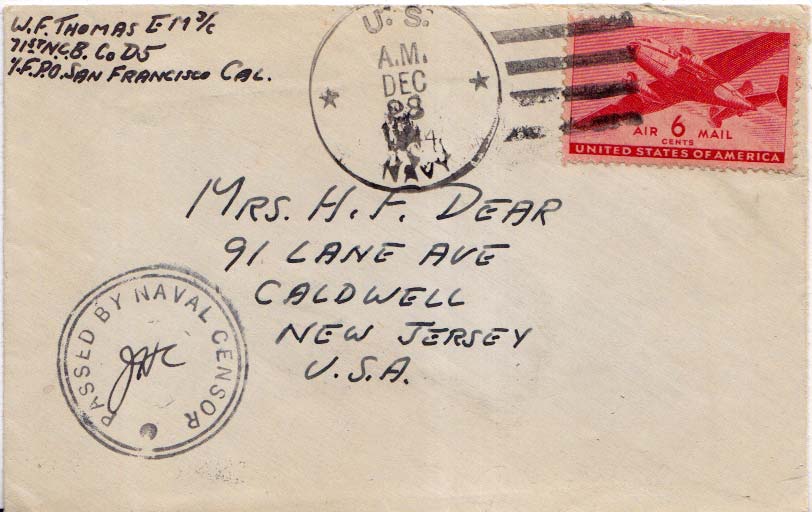 W.F. THOMAS EM 3/C
71ST N.C.B. CO D5
℅ F.P.O. SAN FRANCISCO CAL.
U. S.
A.M.
DEC
NAVY
AIR 6 MAIL
CENTS
UNITED STATES OF AMERICA
MRS. H. F. DEAR
91 LANE AVE
CALDWELL
NEW JERSEY
U.S.A.
PASSED BY NAVAL CENSOR